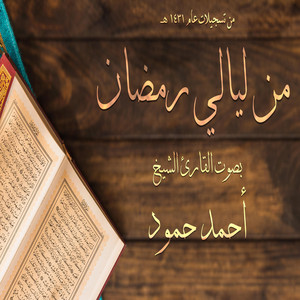 من تسجيلات عام ١٤٣١ هـ
من ليالي رمضان
بصوت القارئ الشيخ
أحمد حمود